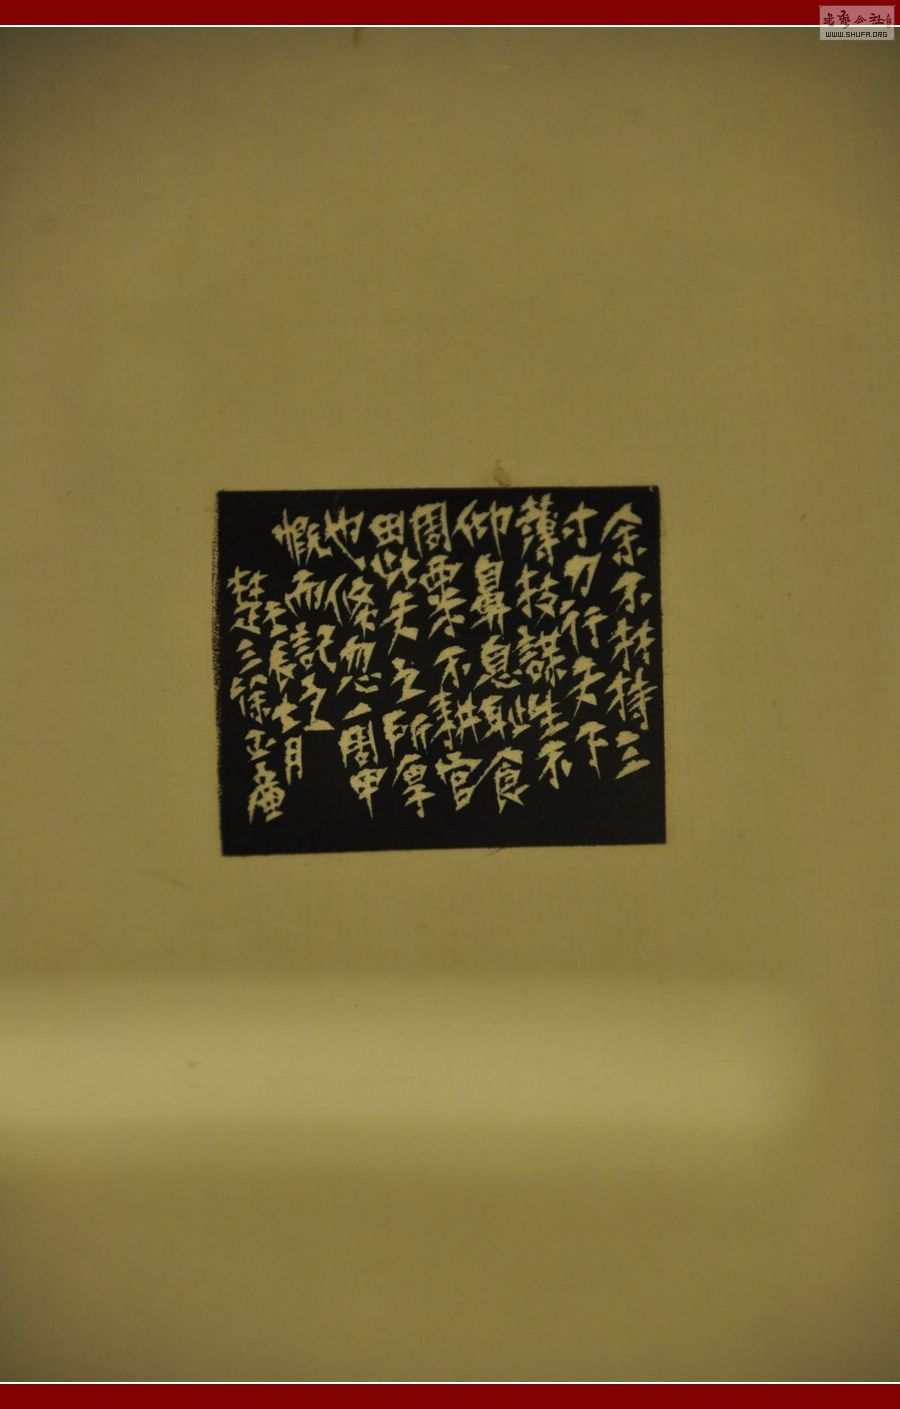 余不材持三
寸刀行天下
薄技謀生不
仰鼻息耻食
周粟不耕官
田此天之所厚
也倏忽一周甲
慨而記之
壬辰七月
楚三徐正廉
書藝公社
WWW.SHUFA.ORG